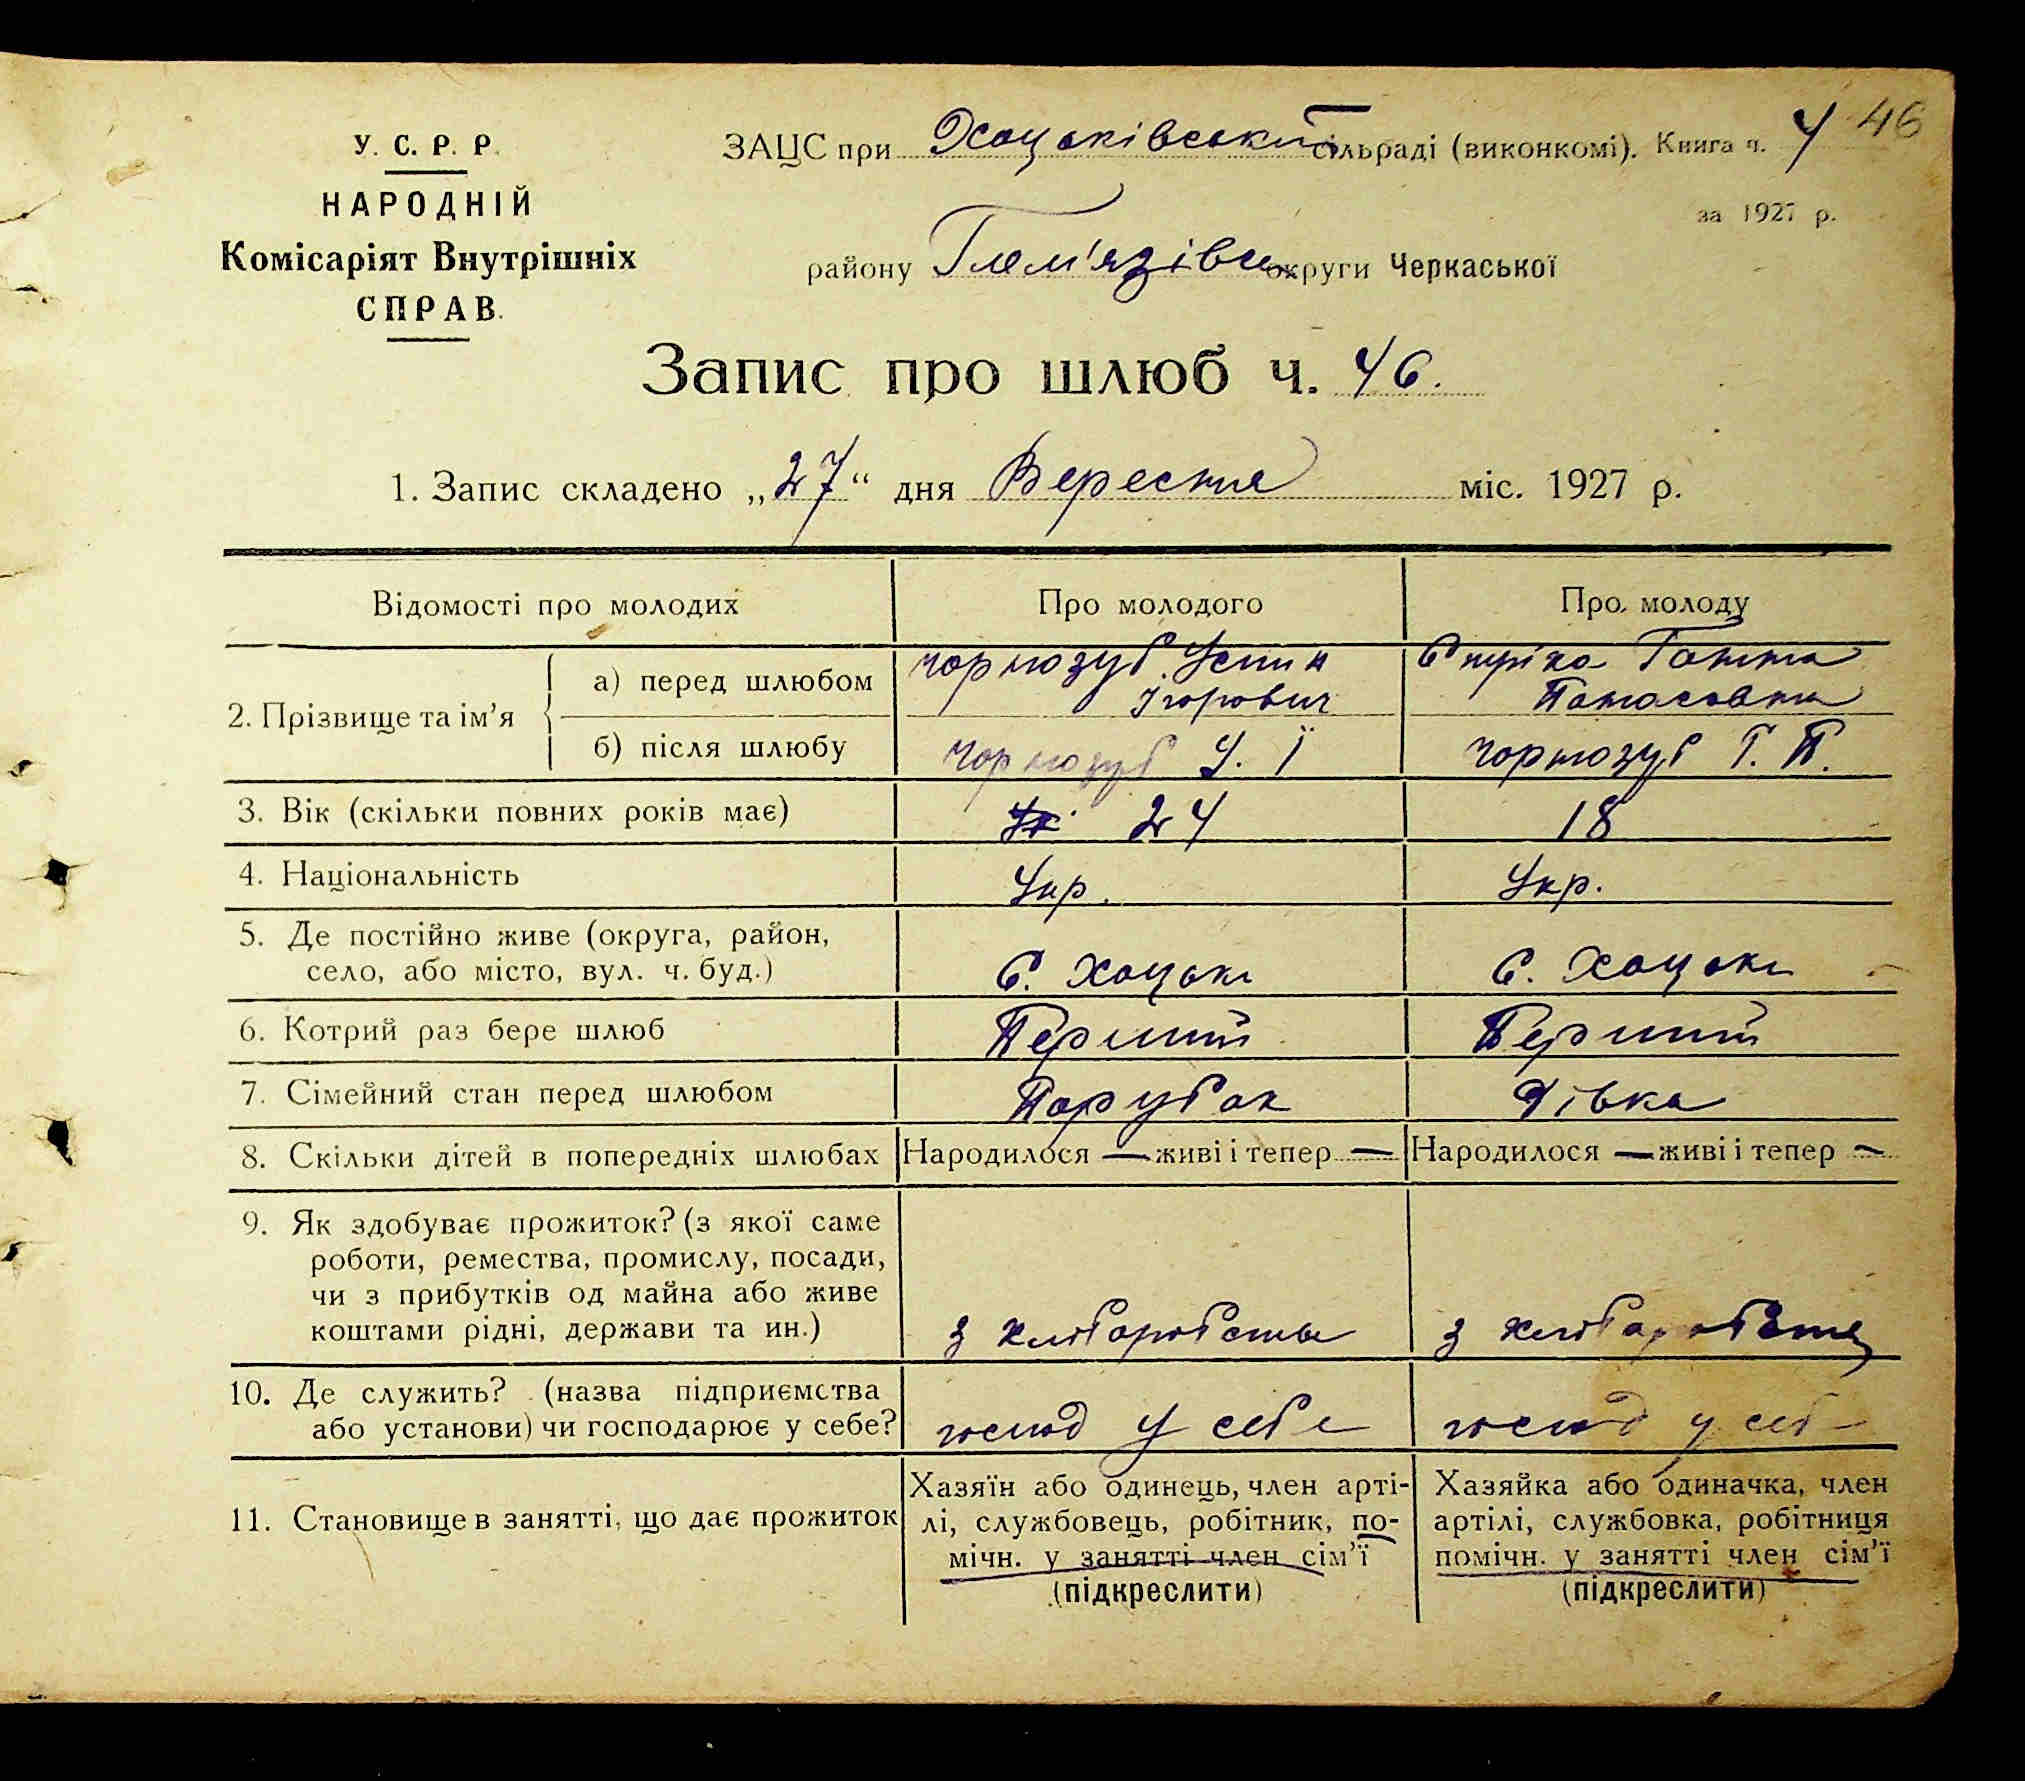 У. С. Р. Р.
НАРОДНІЙ
Комісаріят Внутрішніх
СПРАВ.
ЗАЦС при Хоцьківській сільраді (виконкомі). Книга ч. 4 46
за 1927 р.
району Гельм'язівськ округи Черкаської
Запис про шлюб ч. 46.
1. Запис складено „27“ дня Вересня міс. 1927 р.
Відомості про молодих
Про молодого
Про молоду
2. Прізвище та ім'я
а) перед шлюбом
Чорнозуб Устин
Ігорович
Ганна
Панасовна
б) після шлюбу
Чорнозуб У. Ї
Чорнозуб Г. П.
3. Вік (скільки повних років має)
24
18
4. Національність
Укр.
Укр.
5. Де постійно живе (округа, район,
село, або місто, вул. ч. буд.)
С. Хоцьки
С. Хоцьки
6. Котрий раз бере шлюб
Перший
Перший
7. Сімейний стан перед шлюбом
Парубок
Дівка
8. Скільки дітей в попередніх шлюбах
Народилося — живі і тепер —
Народилося — живі і тепер —
9. Як здобуває прожиток? (з якої саме
роботи, ремества, промислу, посади,
чи з прибутків од майна або живе
коштами рідні, держави та ин.)
з хліборобства
з хліборобства
10. Де служить? (назва підприємства
або установи) чи господарює у себе?
господ у себе
господ у себе
11. Становище в занятті, що дає прожиток
Хазяїн або одинець, член арті-
лі, службовець, робітник, по-
мічн. у занятті член сім'ї
(підкреслити)
Хазяйка або одиначка, член
артілі, службовка, робітниця
помічн. у занятті член сім'ї
(підкреслити)